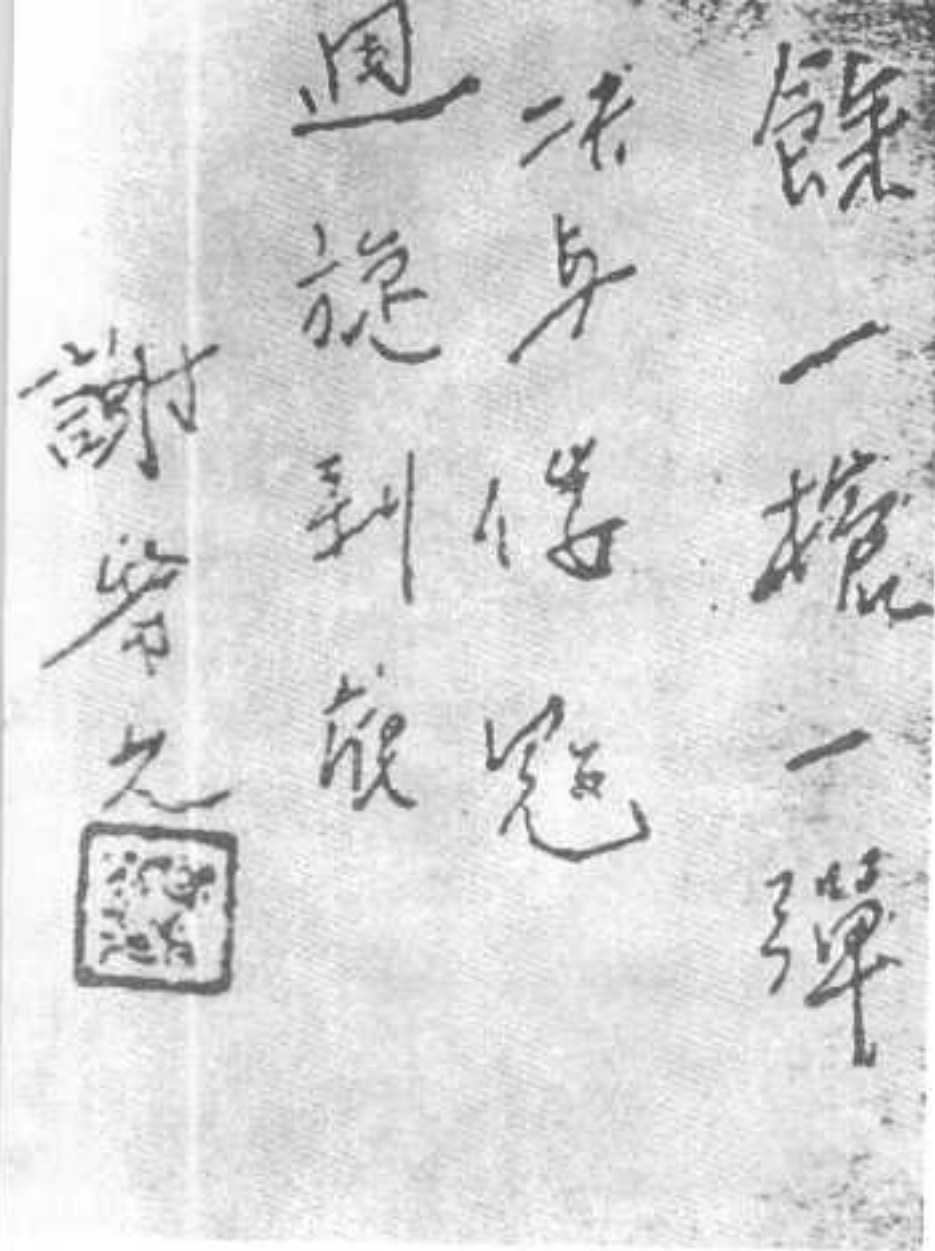 餘一槍一彈
决與倭寇
週旋到底
謝晉元